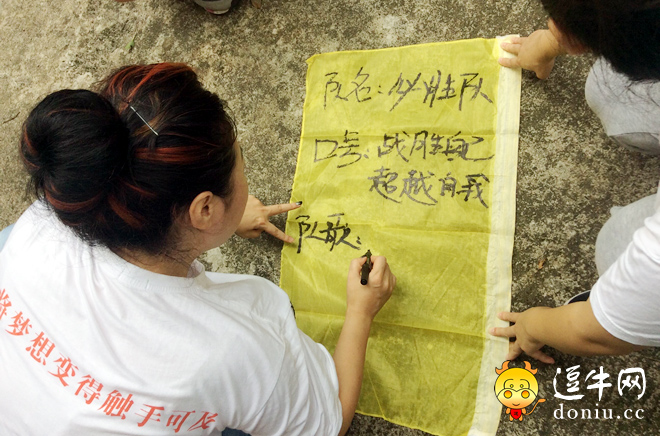 队名：必胜队
口号：战胜自己
超越自我
队歌：
将梦想变得触手可及
逗牛网
doniu.cc